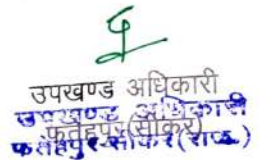 उपखण्ड अधिकारी
उपखण्ड अधिकारी
फतेहपुर(सीकर)
फतेहपुर-सीकर(राज.)